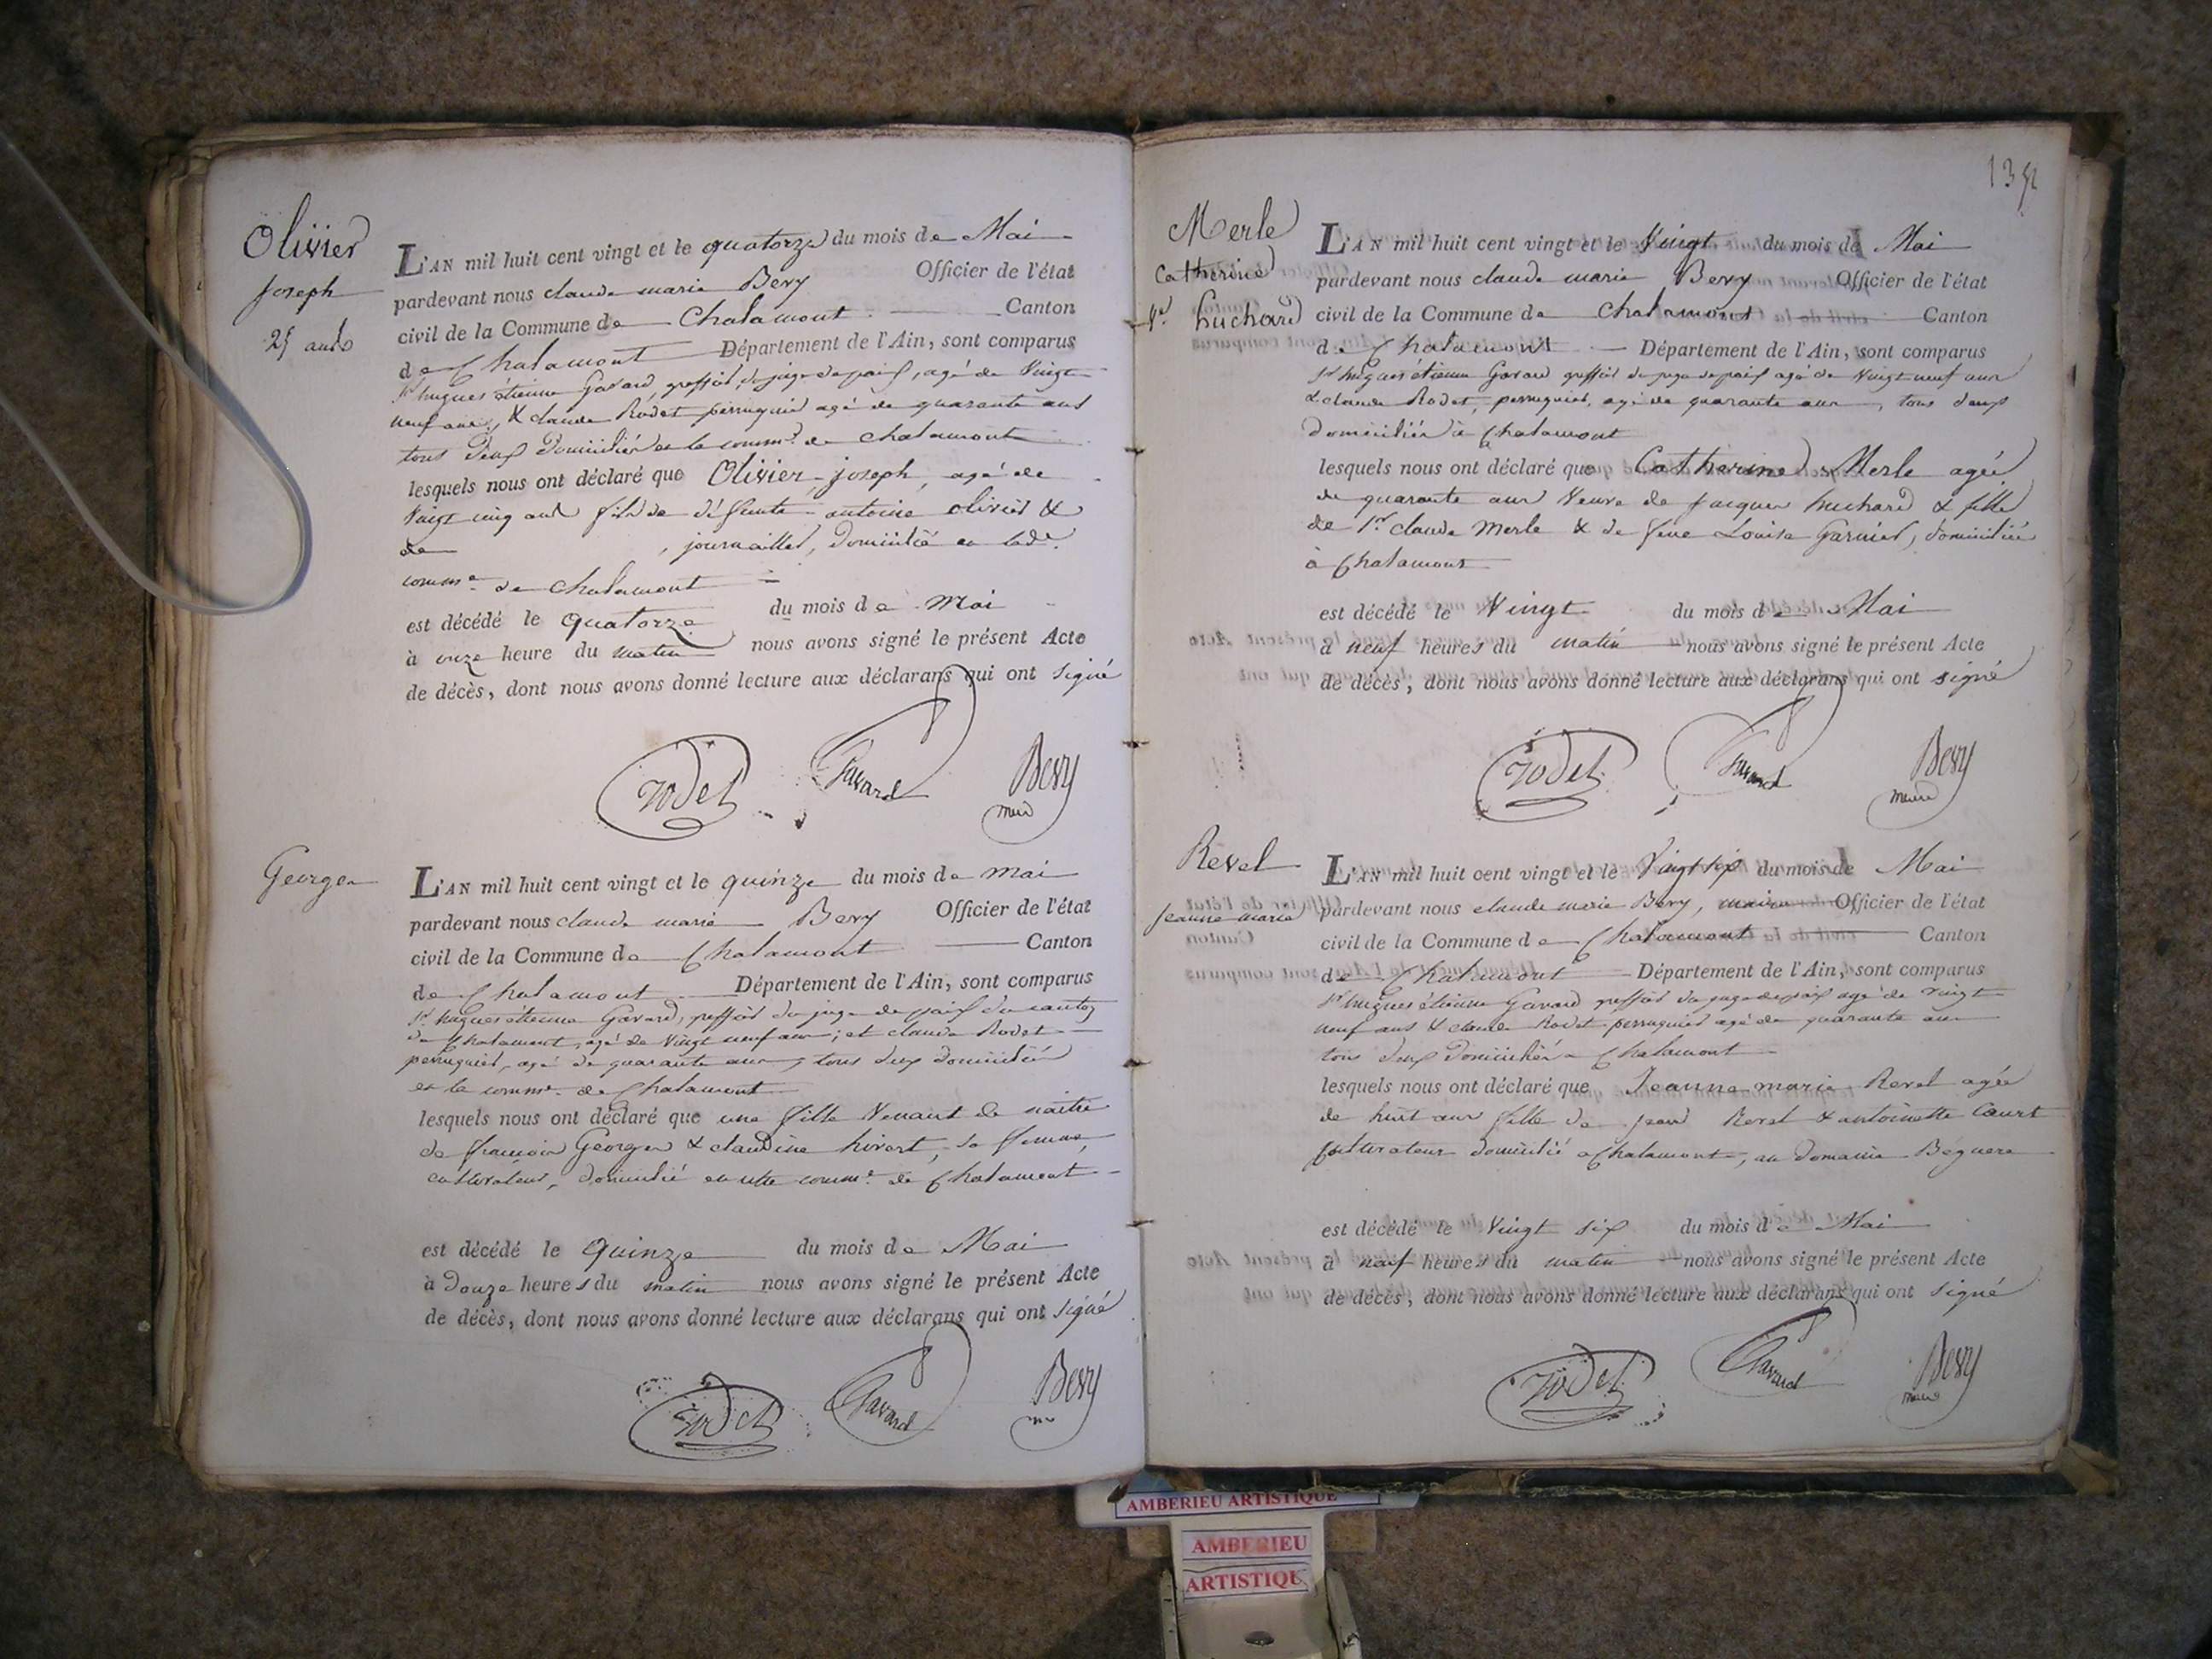 Olivier
Joseph
25 ans
L'AN mil huit cent vingt et le quatorze du mois de Mai
pardevant nous claude marie Bevy Officier de l'état
civil de la Commune de Chalamont Canton
de Chalamont Département de l'Ain, sont comparus
Sr hugues étienne Gavard, greffier du juge de paix, agé de Vingt
neuf ans, & claude Rodet perruquier agé de quarante ans
tous deux Domiciliés en la comme de chalamont
lesquels nous ont déclaré que Olivier joseph, agé de
Vingt cinq ans fils de défunts antoine olivier &
de , journaillier, Domicilié en lade
comme de chalamont
est décédé le quatorze du mois de Mai
à onze heure du matin nous avons signé le présent Acte
de décès, dont nous avons donné lecture aux déclarans qui ont signé
rodet Gavard Bevy
maire
Georges
L'AN mil huit cent vingt et le quinze du mois de mai
pardevant nous claude marie Bevy Officier de l'état
civil de la Commune de Chalamont Canton
de Chalamont Département de l'Ain, sont comparus
Sr hugues étienne Gavard, greffier du juge de paix du canton
de Chalamont, agé de Vingt neuf ans, et claude Rodet
perruquier, agé de quarante ans, tous deux domiciliés
en la comme de Chalamont
lesquels nous ont déclaré que une fille Venant de naitre
de françois Georges & claudine hivert, sa femme,
cultivateur, domicilié en cette comme de Chalamont
est décédé le Quinze du mois de Mai
à Douze heures du matin nous avons signé le présent Acte
de décès, dont nous avons donné lecture aux déclarans qui ont signé
rodet Gavard Bevy
Merle
Catherine
Ve huchard
L'AN mil huit cent vingt et le Vingt du mois de Mai
pardevant nous claude marie Bevy Officier de l'état
civil de la Commune de Chalamont Canton
de Chalamont Département de l'Ain, sont comparus
Sr hugues étienne Gavard greffier du juge de paix agé de Vingt neuf ans
& claude Rodet, perruquier, agé de quarante ans, tous deux
domiciliés à Chalamont
lesquels nous ont déclaré que Catherine Merle agée
de quarante ans Veuve de Jacques huchard & fille
de Sr claude Merle & de feue Louise Garnier, domiciliée
à Chalamont
est décédé le Vingt du mois de Mai
à neuf heures du matin nous avons signé le présent Acte
de décès, dont nous avons donné lecture aux déclarans qui ont signé
rodet Gavard Bevy
maire
Revel
jeanne marie
L'AN mil huit cent vingt et le Vingt six du mois de Mai
pardevant nous claude marie Bevy, maire Officier de l'état
civil de la Commune de Chalamont Canton
de Chalamont Département de l'Ain, sont comparus
Sr hugues étienne Gavard greffier du juge de paix agé de vingt
neuf ans & claude Rodet perruquier agé de quarante ans
tous deux Domiciliés à Chalamont
lesquels nous ont déclaré que Jeanne marie Revel agée
de huit ans fille de jean Revel & antoinette Court
Cultivateur domicilié à Chalamont, au domaine Béguere
est décédé le Vingt six du mois de Mai
à neuf heures du matin nous avons signé le présent Acte
de décès, dont nous avons donné lecture aux déclarans qui ont signé
rodet Gavard Bevy
maire
AMBERIEU ARTISTIQUE
AMBERIEU
ARTISTIQUE